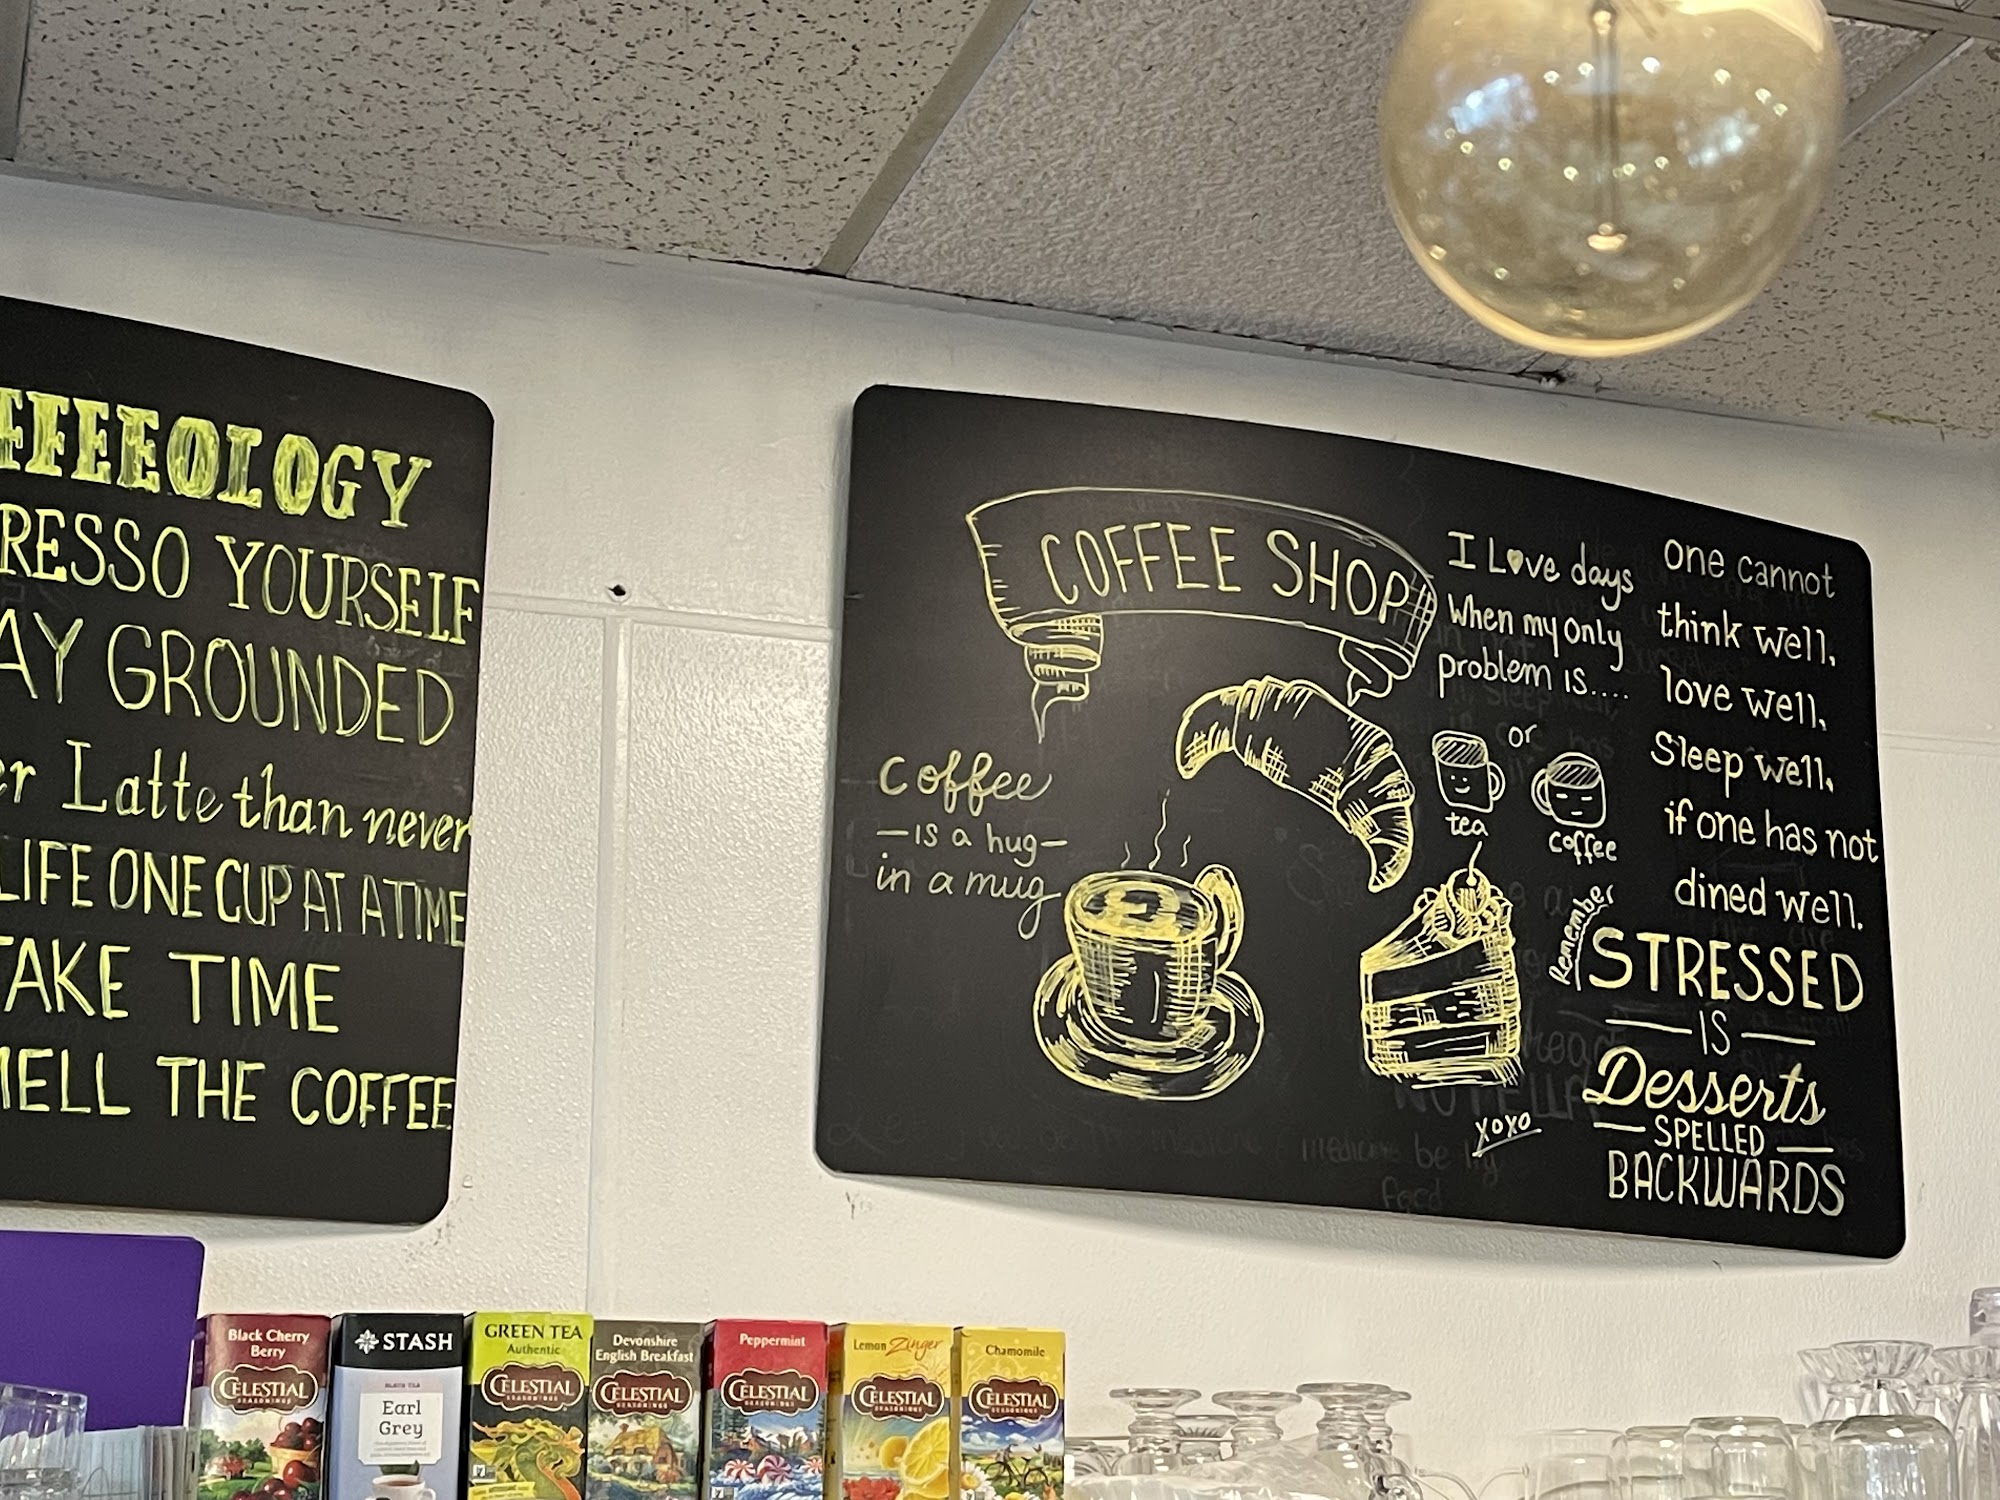 FFEEOLOGY
RESSO YOURSELF
AY GROUNDED
er Latte than never
LIFE ONE CUP AT A TIME
TAKE TIME
MELL THE COFFEE
COFFEE SHOP
coffee
—is a hug—
in a mug
I Love days
When my only
problem is....
or
tea
coffee
one cannot
think well,
love well,
Sleep well,
if one has not
dined well.
Remember
STRESSED
— IS —
Desserts
— SPELLED —
BACKWARDS
xoxo
Black Cherry
Berry
CELESTIAL
SEASONINGS
STASH
BLACK TEA
Earl
Grey
GREEN TEA
Authentic
CELESTIAL
SEASONINGS
Devonshire
English Breakfast
CELESTIAL
SEASONINGS
Peppermint
CELESTIAL
SEASONINGS
Lemon Zinger
CELESTIAL
SEASONINGS
Chamomile
CELESTIAL
SEASONINGS